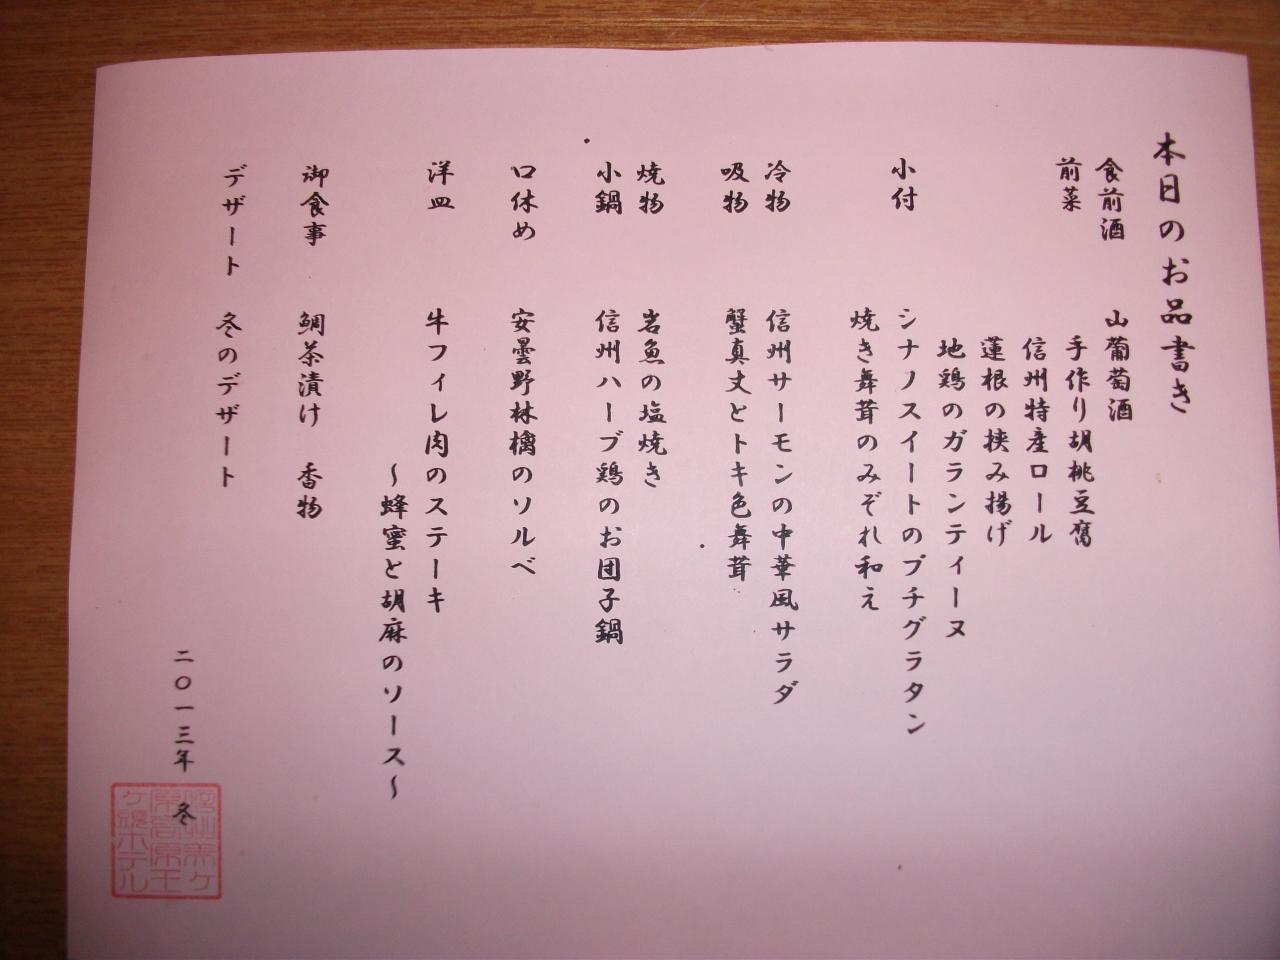 本日のお品書き
食前酒　山葡萄酒
前菜　手作り胡桃豆腐
信州特産ロール
蓮根の挟み揚げ
地鶏のガランティーヌ
小付　シナノスイートのプチグラタン
焼き舞茸のみぞれ和え
冷物　信州サーモンの中華風サラダ
吸物　蟹真丈とトキ色舞茸
焼物　岩魚の塩焼き
小鍋　信州ハーブ鶏のお団子鍋
口休め　安曇野林檎のソルベ
洋皿　牛フィレ肉のステーキ
～蜂蜜と胡麻のソース～
御食事　鯛茶漬け　香物
デザート　冬のデザート
二〇一三年　冬
信州美ヶ
原高原王
ヶ頭ホテル